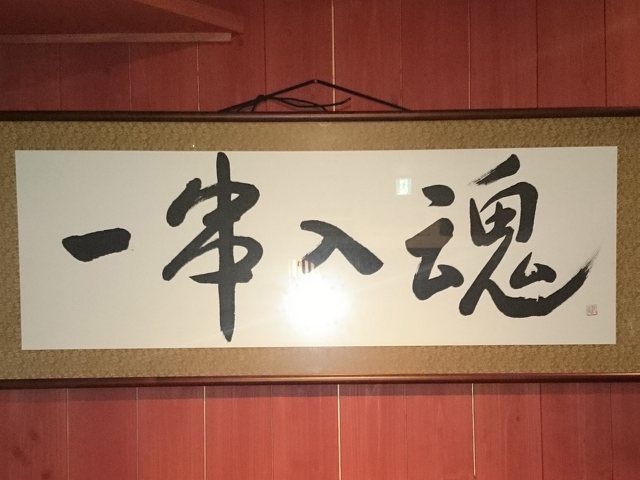 一串入魂